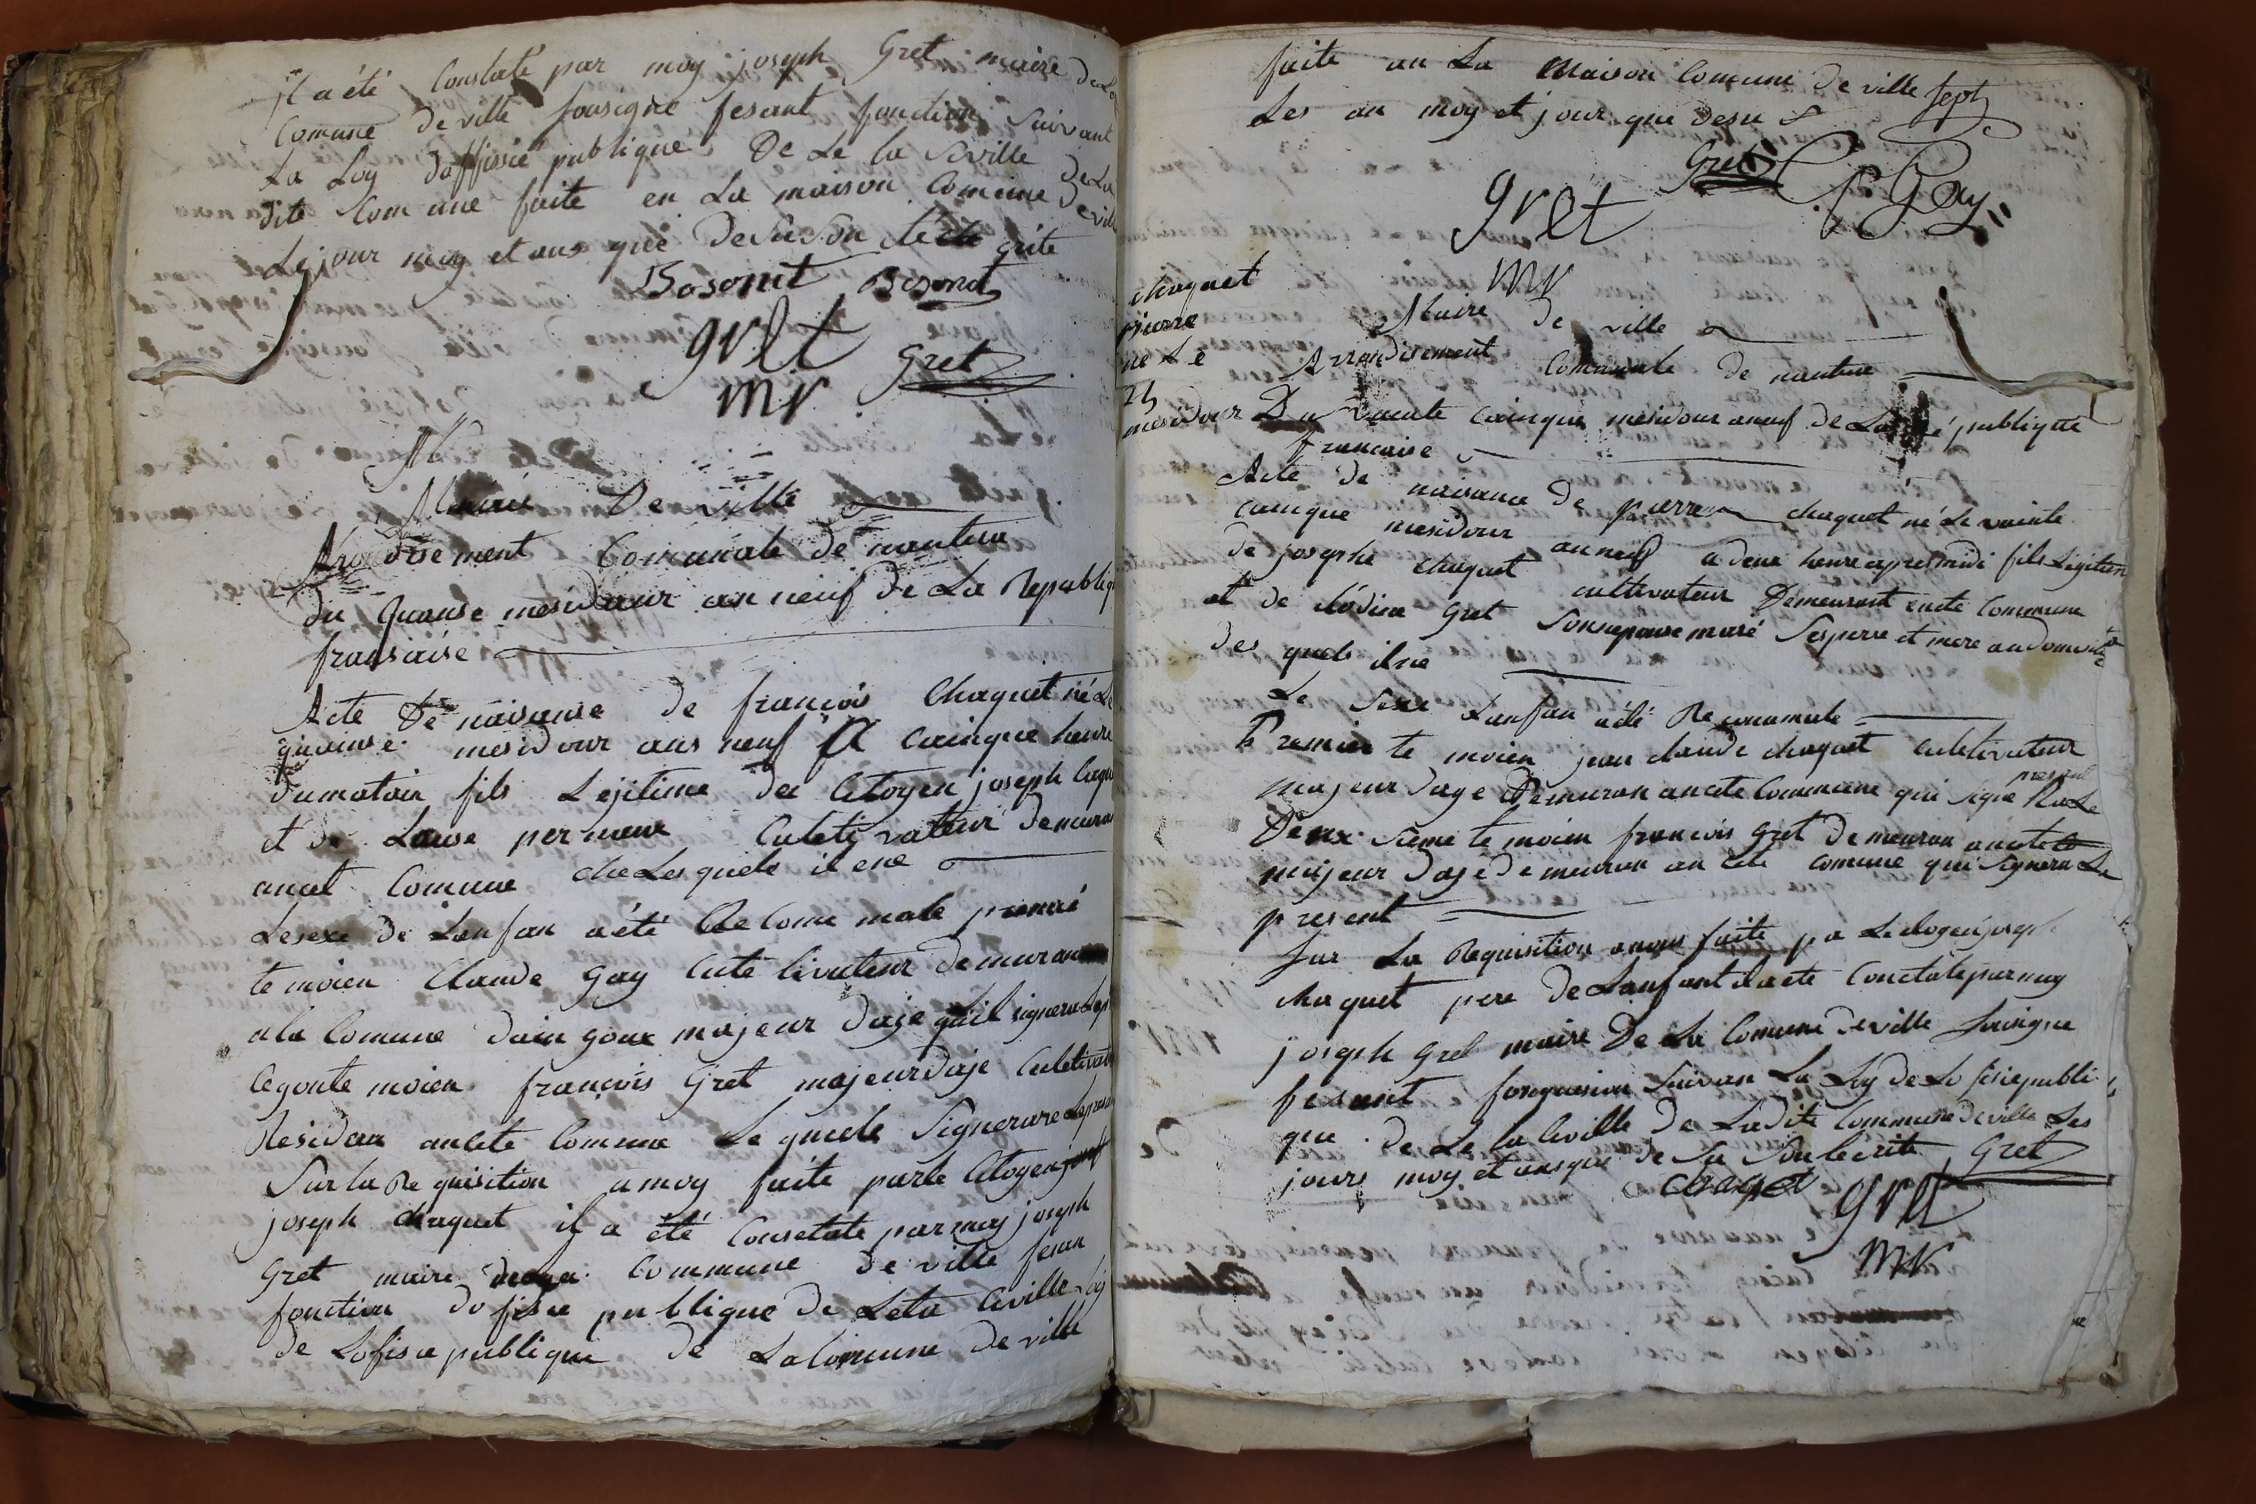 il a été Constaté par moy joseph Gret maire de La
Comune de ville sousigné fesant fonction suivant
La Loy doffissié publique De Le ta Siville De La
dite Comune faite en La maison Comune De ville
Le jour moy et ans que desu
Bosonet Bosonet
gret
Gret
mr
Mairie De ville
Arondisement Comunale de nantua
du quanse mesidour an neuf de La Republiq
fransaise
Acte De naisanse de françois Chaquet né Le
quainse mesidour ans neuf A Cainque heure
dumatain fils Lejitime du Citoyen joseph
et de Louise Culetivateur demuran
ancet Comune desLesquels il ene
Lesexe de Lenfan a été Reconu male premié
temoien Claude Gay Culetivateur demuran
ala Comune majeur daje quil signera
Cegonte moien françois Gret majeurdaje Culetivat
Residan ancete Comune Le quele Signerare Lepresan
Sur la Requisition amoy faite parle Citoyen
joseph chaquet il a été Consetate parmoy joseph
Gret maire Commune de ville fesan
fonction dofisie publique de Leta Civille Loy
de Lofisie publique de LaComune de ville
faite an La Maison Comune de ville
Les an moy et jour que desu
Gret C f Gay
gret
mr
chaquet
pierre
né Le
25
mesidour
Maire de ville
Arrondisement Communale de nantua
Du vainte Cainque mesidour aneuf de La République
francaise
Acte de naisance de pierre chaquet né Le vainte
cainque mesidour anneuf a deux heure apres midi fils Légitim
de josephe chaquet cultivateur Demeurant encete Commune
et de Clodine Gret Sonnepouse marié Sespere et mere audomicile
des quels ilne
Le Sexe Lanfan a été Reconumale
Premier te moien jean claude chaquet Culetivateur
majeur dage Demuran ancete Commune qui signe Le
present
Deuxsieme te moien françois Gret demeuran ancete
majeur daje demeuran an cete comune qui Signera Le
present
Sur La Requisition anous faite pa Lecitoyen joseph
chaquet pere de Lanfant ila ete Constaté par moy
joseph Gret maire De La Comune deville Sousigne
fesant fonquesion Suivan La Loy de Lofisiepubli
que de Le ta Civille De Ladite Commune deville Les
jours moy et ansque de Su Gret
chaqet gret
mr